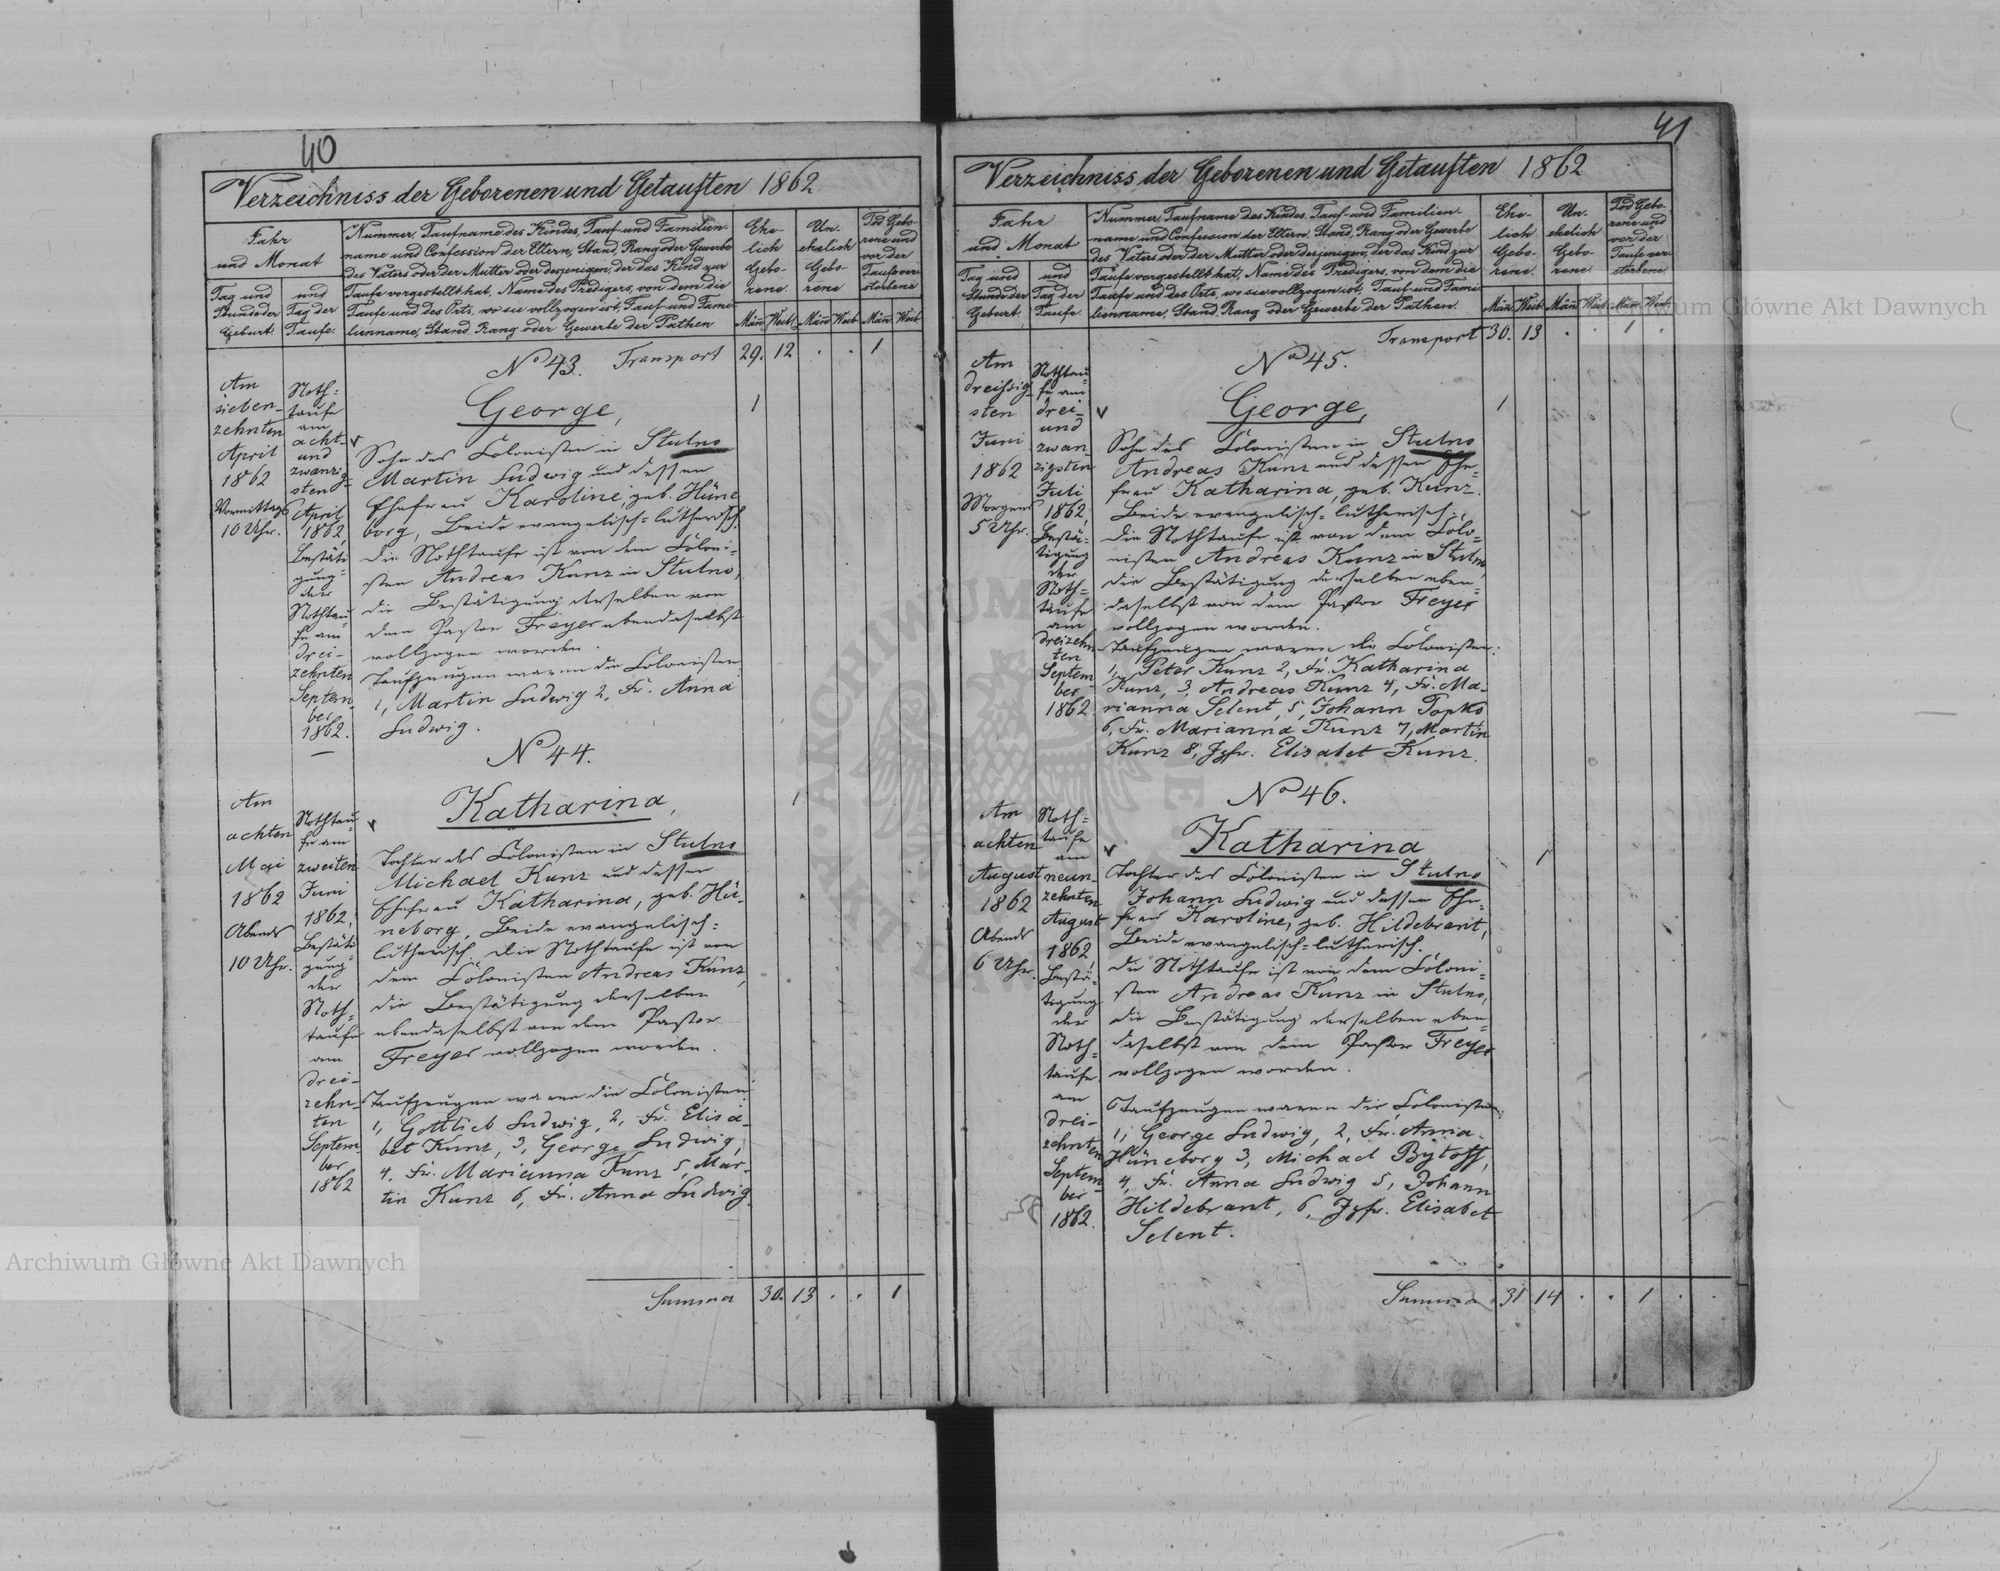 40
Verzeichniss der Geborenen und Getauften 1862
Jahr
und Monat
Tag und
Stunde der
Geburt.
und
Tag der
Taufe.
Nummer, Taufname des Kindes, Tauf- und Familien-
name und Confession der Eltern, Stand, Rang oder Gewerbe
des Vaters oder der Mutter oder desjenigen, der das Kind zur
Taufe vorgestellt hat, Name des Predigers, von dem die
Taufe und des Orts, wo sie vollzogen ist, Tauf- und Fami-
lienname, Stand, Rang oder Gewerbe der Pathen
Ehe-
lich
Gebo-
rene.
Un-
ehelich
Gebo-
rene
Tod Gebo-
rene und
vor der
Taufe ver-
storbene
Män̄. Weib. Män̄ Weib. Män̄. Weib.
Transport 29. 12 . . 1
No 43.
Am
sieben-
zehnten
April
1862
Vormittags
10 Uhr.
Noth=
taufe
am
acht-
und
zwanzig-
sten
April
1862,
Bestäti
gung
der
Nothtau
fe am
drei-
zehnten
Septem-
ber
1862.
George, 1
Sohn des Colonisten in Stulno
Martin Ludwig und dessen
Ehefrau Karoline, geb. Hüne
borg, Beide evangelisch=lutherisch.
Die Nothtaufe ist von dem Coloni=
sten Andreas Kunz in Stulno,
die Bestätigung derselben von
dem Pastor Freyer ebendaselbst
vollzogen worden.
Taufzeugen waren die Colonisten
1, Martin Ludwig 2, Fr. Anna
Ludwig.
No 44.
Am
achten
Mai
1862
Abends
10 Uhr.
Nothtau-
fe am
zweiten
Juni
1862;
Bestäti
gung
der
Noth=
taufe
am
drei-
zehn-
ten
Septem-
ber
1862
Katharina, 1
Tochter des Colonisten in Stulno
Michael Kunz und dessen
Ehefrau Katharina, geb. Hü-
neborg, Beide evangelisch=
lutherisch. Die Nothtaufe ist von
dem Colonisten Andreas Kunz,
die Bestätigung derselben
ebendaselbst von dem Pastor
Freyer vollzogen worden.
Taufzeugen waren die Colonisten:
1, Gottlieb Ludwig, 2, Fr. Elisa-
bet Kunz, 3, George Ludwig,
4. Fr. Marianna Kunz 5, Mar-
tin Kunz 6, Fr. Anna Ludwig.
Summa 30. 13 . . 1
41
Verzeichniss der Geborenen und Getauften 1862
Jahr
und Monat
Tag und
Stunde der
Geburt.
und
Tag der
Taufe
Nummer, Taufname des Kindes, Tauf- und Familien-
name und Confession der Eltern, Stand, Rang oder Gewerbe
des Vaters oder der Mutter oder desjenigen, der das Kind zur
Taufe vorgestellt hat, Name des Predigers, von dem die
Taufe und des Orts, wo sie vollzogen ist, Tauf- und Fami-
lienname, Stand, Rang oder Gewerbe der Pathen.
Ehe-
lich
Gebo-
rene.
Un-
ehelich
Gebo-
rene
Tod Gebo-
rene und
vor der
Taufe ver-
storbene
Män̄. Weib. Män̄. Weib. Män̄. Weib.
Transport 30. 13 . . 1 .
No 45.
Am
dreissig-
sten
Juni
1862
Morgens
5 Uhr.
Nothtau-
fe am
drei-
und
zwan-
zigsten
Juli
1862,
Bestä-
tigung
der
Noth=
taufe
am
dreizehn
ten
Septem
ber
1862.
George, 1
Sohn des Colonisten in Stulno
Andreas Kunz und dessen Ehe-
frau Katharina, geb. Kunz.
Beide evangelisch=lutherisch.
Die Nothtaufe ist von dem Colo-
nisten Andreas Kunz in Stulno,
die Bestätigung derselben eben=
daselbst von dem Pastor Freyer
vollzogen worden.
Taufzeugen waren die Colonisten:
1, Peter Kunz 2, Fr. Katharina
Kunz, 3, Andreas Kunz 4, Fr. Ma-
rianna Selent, 5, Johann Topko
6, Fr. Marianna Kunz 7, Martin
Kunz 8, Jgfr. Elisabet Kunz.
No 46.
Am
achten
August
1862
Abends
6 Uhr.
Noth=
taufe
am
neun-
zehnten
August
1862,
Bestä-
tigung
der
Noth=
taufe
am
drei-
zehnten
Septem-
ber
1862.
Katharina 1
Tochter des Colonisten in Stulno
Johann Ludwig und dessen Ehe-
frau Karoline, geb. Hildebrant,
Beide evangelisch=lutherisch.
Die Nothtaufe ist von dem Coloni=
sten Andreas Kunz in Stulno,
die Bestätigung derselben eben=
daselbst von dem Pastor Freyer
vollzogen worden.
Taufzeugen waren die Colonisten:
1, George Ludwig, 2, Fr. Anna
Hüneborg 3, Michael Bytoff,
4, Fr. Anna Ludwig 5, Johann
Hildebrant, 6, Jgfr. Elisabet
Selent.
Summa 31 14 . . 1 .
Archiwum Główne Akt Dawnych
Archiwum Główne Akt Dawnych